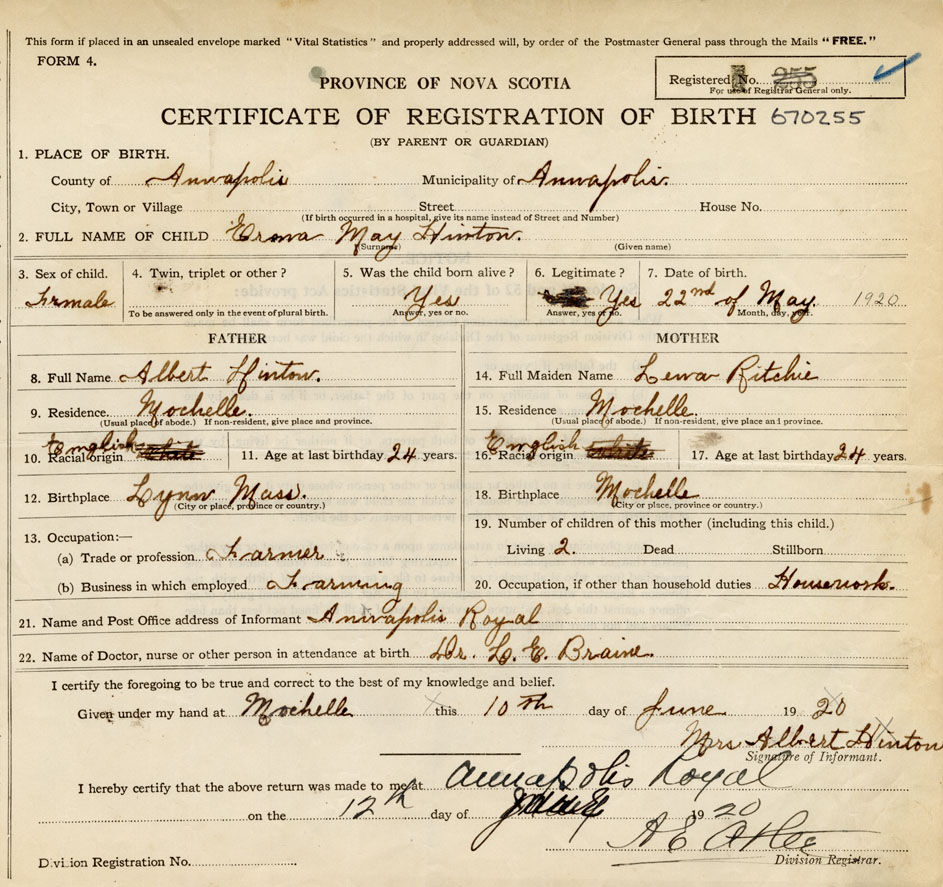 This form if placed in an unsealed envelope marked "Vital Statistics" and properly addressed will, by order of the Postmaster General pass through the Mails "FREE."
FORM 4.
PROVINCE OF NOVA SCOTIA
Registered No. 255
For use of Registrar General only.
CERTIFICATE OF REGISTRATION OF BIRTH 670255
(BY PARENT OR GUARDIAN)
1. PLACE OF BIRTH.
County of Annapolis Municipality of Annapolis.
City, Town or Village Street House No.
(If birth occurred in a hospital, give its name instead of Street and Number)
2. FULL NAME OF CHILD Erma May Hinton.
(Surname) (Given name)
3. Sex of child. 4. Twin, triplet or other? 5. Was the child born alive? 6. Legitimate? 7. Date of birth.
Female Yes Yes 22nd of May. 1920
To be answered only in the event of plural birth. Answer, yes or no. Answer, yes or no. Month, day, year.
FATHER MOTHER
8. Full Name Albert Hinton. 14. Full Maiden Name Lena Ritchie
9. Residence Mochelle. 15. Residence Mochelle.
(Usual place of abode.) If non-resident, give place and province. (Usual place of abode.) If non-resident, give place and province.
10. Racial origin English white 11. Age at last birthday 24 years. 16. Racial origin English white 17. Age at last birthday 24 years.
12. Birthplace Lynn Mass. 18. Birthplace Mochelle
(City or place, province or country.) (City or place, province or country.)
13. Occupation:— 19. Number of children of this mother (including this child.)
(a) Trade or profession Farmer Living 2. Dead Stillborn
(b) Business in which employed Farming 20. Occupation, if other than household duties Housework.
21. Name and Post Office address of Informant Annapolis Royal
22. Name of Doctor, nurse or other person in attendance at birth Dr. L. E. Braine.
I certify the foregoing to be true and correct to the best of my knowledge and belief.
Given under my hand at Mochelle this 10th day of June 1920
Mrs Albert Hinton
Signature of Informant.
I hereby certify that the above return was made to me at Annapolis Royal
on the 12th day of 1920
A E
Division Registrar.
Division Registration No.